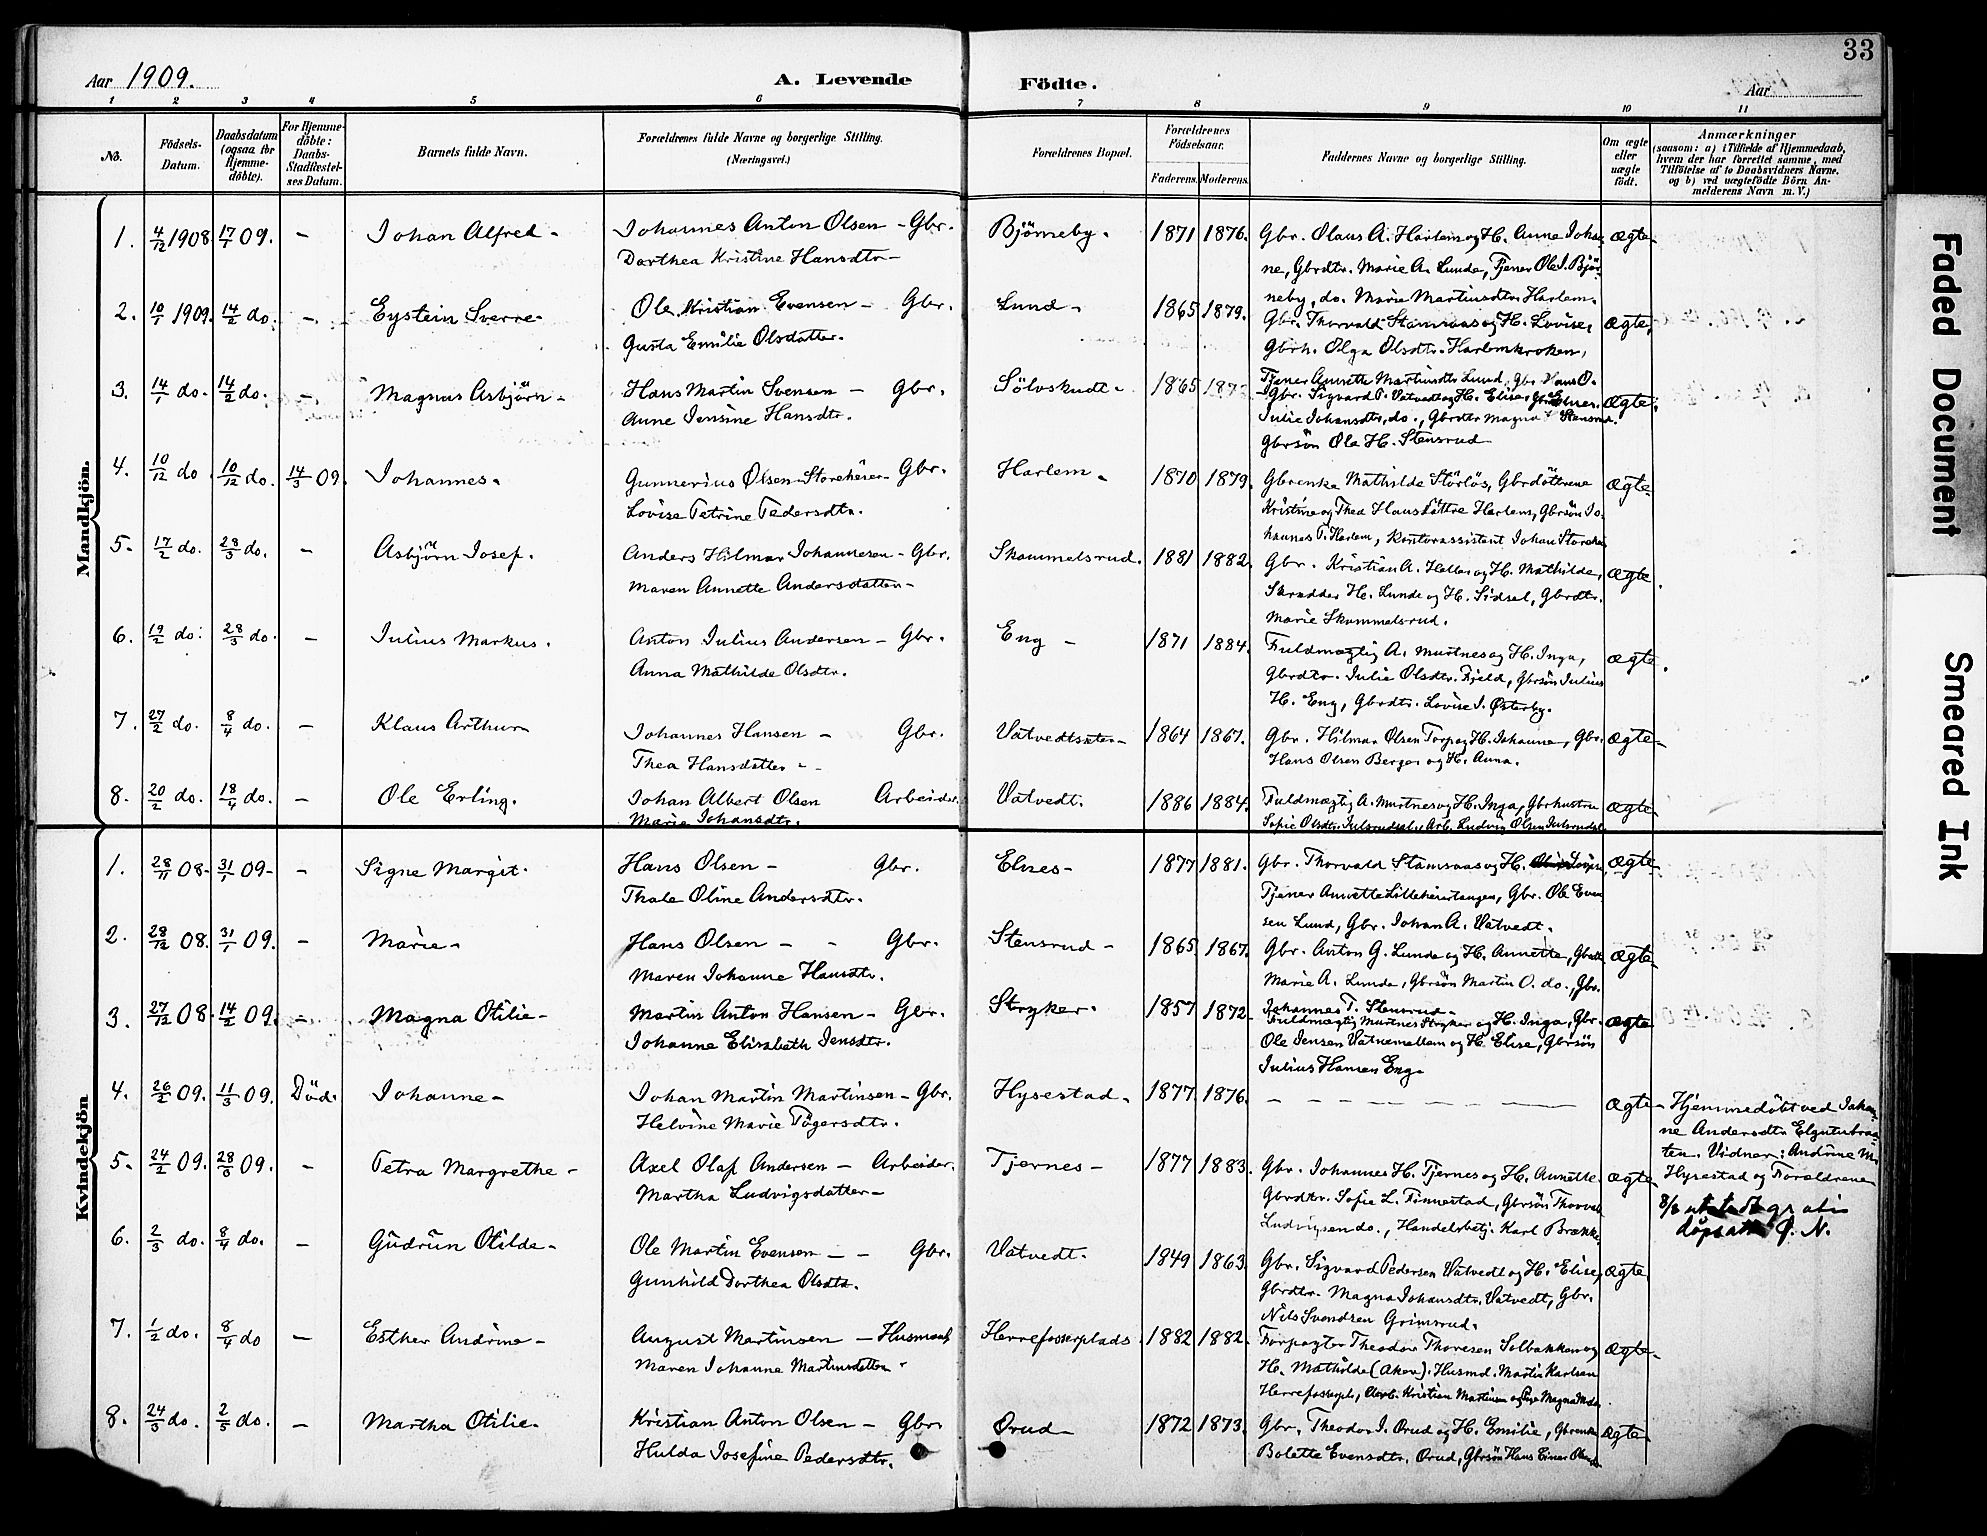 33
Aar 1909.
A. Levende
Födte.
Aar
1 2 3 4 5 6 7 8 9 10 11
No.
Födsels-Datum.
Daabsdatum (ogsaa for Hjemme-döbte).
For Hjemme-döbte: Daabs-Stadfæstel-ses Datum.
Barnets fulde Navn.
Forældrenes fulde Navne og borgerlige Stilling. (Næringsvei.)
Forældrenes Bopæl.
Forældrenes Födselsaar.
Faderens. Moderens.
Faddernes Navne og borgerlige Stilling.
Om ægte eller uægte födt.
Anmærkninger (saasom: a) i Tilfælde af Hjemmedaab, hvem der har forrettet samme, med Tilföielse af to Daabsvidners Navne, og b) ved uægtefödte Börn An-melderens Navn m. V.)
Mandkjön.
1. 4/12 1908. 17/1 09. - Johan Alfred - Johannes Anton Olsen - Gbr. Bjørneby. 1871 1876. Gbr. Olaus A. Harlem og H. Anne Johan- ægte
Dorthea Kristine Hansdtr - ne, Gbrdtr. Marie A. Lunde, Tjener Ole J. Bjør-
neby, do. Marie Martinsdtr. Harlem.
2. 10/1 1909. 14/2 do. - Eystein Sverre - Ole Kristian Evensen - Gbr. Lund - 1865 1879. Gbr. Thorvald Stamsaas og H. Lovise, ægte
Gusta Emilie Olsdatter. Gbrh. Olga Olsdtr. Harlemkroken,
Tjener Annette Martinsdtr Lund, Gbr. Hans O.
3. 14/1 do. 14/2 do. - Magnus Asbjörn - Hans Martin Svensen - Gbr. Sölvskudt - 1865 Gbr. Sigvard P. Vatvedt og H. Elise, ægte.
Anne Jensine Hansdtr. Julie Johansdtr. do., Gbrdtr Magna Stensrud.
Gbrsön Ole H. Stensrud
4. 10/12 do. 10/12 do. 14/3 09. Johannes. Gunnerius Olsen Storehéier - Gbr. Harlem - 1870 1879. Gbrenke Mathilde Störlös, Gbrdöttrene ægte
Lovise Petrine Pedersdtr. Kristine og Thea Hansdöttre Harlem, Gbrsön Jo-
hannes P. Harlem, Kontorassistent Johan Storehei
5. 17/2 do. 28/3 do. - Asbjörn Josef. Anders Hilmar Johannesen - Gbr. Skammelsrud. 1881 1882. Gbr. Kristian A. Heller og H. Mathilde, ægte.
Maren Annette Andersdatter - Skrædder H. Lunde og H. Sidsel, Gbrdtr.
Marie Skammelsrud.
6. 19/2 do. 28/3 do. - Julius Markus. Anton Julius Andersen - Gbr. Eng - 1871 1884. Fuldmægtig A. Murtnes og H. Inga, ægte.
Anna Mathilde Olsdtr. Gbrdtr. Julie Olsdtr. Fjeld, Gbrsön Julius
H. Eng, Gbrdtr. Lovise J. Østerby.
7. 27/2 do. 8/4 do. - Klaus Arthur Johannes Hansen - Gbr. Vatvedtsæter - 1864 1867. Gbr. Hilmar Olsen Torp og H. Johanne, Gbr. ægte -
Thea Hansdatter - Hans Olsen Berger og H. Anna.
8. 20/2 do. 18/4 do. - Ole Erling. Johan Albert Olsen Arbeider Vatvedt. 1886 1884. Fuldmægtig A. Murtnes og H. Inga, Gbrhustru ægte
Marie Johansdtr. Sofie Olsdtr. Julsrudsal, Arb. Ludvig Olsen Julsrudsal
Kvindekjön
1. 28/11 08. 31/1 09. - Signe Margit. Hans Olsen - Gbr. Elnes - 1877 1881. Gbr. Thorvald Stamsaas og H. Lovise ægte
Thale Oline Andersdtr. Tjener Annette Lilleheiertangen, Gbr. Ole Even
sen Lund, Gbr. Johan A. Vatvedt.
2. 28/12 08. 31/1 09. - Marie - Hans Olsen - - Gbr. Stensrud - 1865 1867. Gbr. Anton G. Lunde og H. Annette, Gbrdtr ægte
Maren Johanne Hansdtr. Marie A. Lunde, Gbrsön Martin O. do., Gbr.
Johannes T. Stensrud -
3. 27/12 08. 14/2 09. - Magna Otilie - Martin Anton Hansen - Gbr. Stryker. 1857 1872 Fuldmægtig Murtnes Stryker og H. Inga, Gbr. ægte
Johanne Elisabeth Jensdtr. Ole Jensen Vatnemellem og H. Elise, Gbrsön
Julius Hansen Eng.
4. 26/2 09. 11/3 09. Död. Johanne - Johan Martin Martinsen - Gbr. Hysestad - 1877 1876. - - - - - ægte - Hjemmedöbt ved Johan-
Helvine Marie Tögersdtr. ne Andersdtr. Elgutubraa-
ten. Vidner: Andrine M.
Hysestad og Forældrene
5. 24/2 09. 28/3 09. - Petra Margrethe - Axel Olaf Andersen - Arbeider. Tjernes - 1877 1883. Gbr. Johannes H. Tjernes og H. Annette. ægte
Martha Ludvigsdatter - Gbrdtr. Sofie L. Finnestad, Gbrsön Thorvald
Ludvigsen do., Handelsbetj. Karl Brække
gratis
dåpsatt. Ø. N.
6. 2/3 do. 8/4 do. - Gudrun Otilde - Ole Martin Evensen - - Gbr. Vatvedt. 1849 1863. Gbr. Sigvard Pedersen Vatvedt og H. Elise, ægte
Gunhild Dorthea Olsdtr. Gbrdtr. Magna Johansdtr. Vatvedt, Gbr.
Nils Svendsen Grimsrud.
7. 1/2 do. 8/4 do - Esther Andrine - August Martinsen - Husmand Herrefosserplads. 1882 1882. Forpagter Theodor Thoresen Solbakken og ægte -
Maren Johanne Martinsdatter. H. Mathilde (Aker). Husmd. Martin Karlsen
Herrefossepl., Arb. Kristian Martinsen og Pige Magna
8. 24/3 do. 2/5 do. - Martha Otilie - Kristian Anton Olsen - Gbr. Ørud - 1872 1873. Gbr. Theodor J. Ørud og H. Emilie, Gbrenke ægte
Hulda Josefine Pedersdtr. Bolette Evensdtr. Ørud, Gbrsön Hans Einar
Faded Document
Smeared Ink